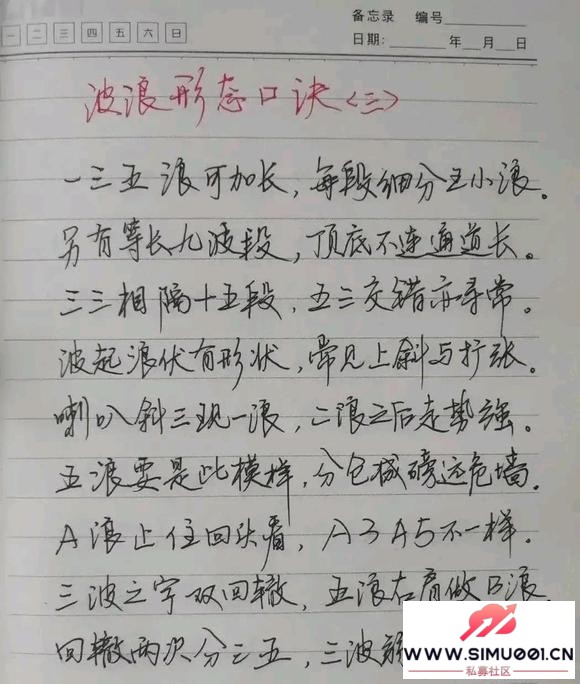 备忘录 编号
一 二 三 四 五 六 日
日期: 年 月 日
波浪形态口诀<三>
一三五浪可加长,每段细分五小浪。
另有等长九波段,顶底不连通道长。
三三相隔十五段,五三交错亦寻常。
波起浪伏有形状,常见上斜与扩张。
喇叭斜三现一浪,二浪之后走势强。
五浪要是此模样,分仓减磅远危墙。
A浪止住回头看,A3A5不一样。
三波之字双回辙,五浪右肩做B浪
回辙两次分三五,三波
WWW.SIMU001.CN
私募社区